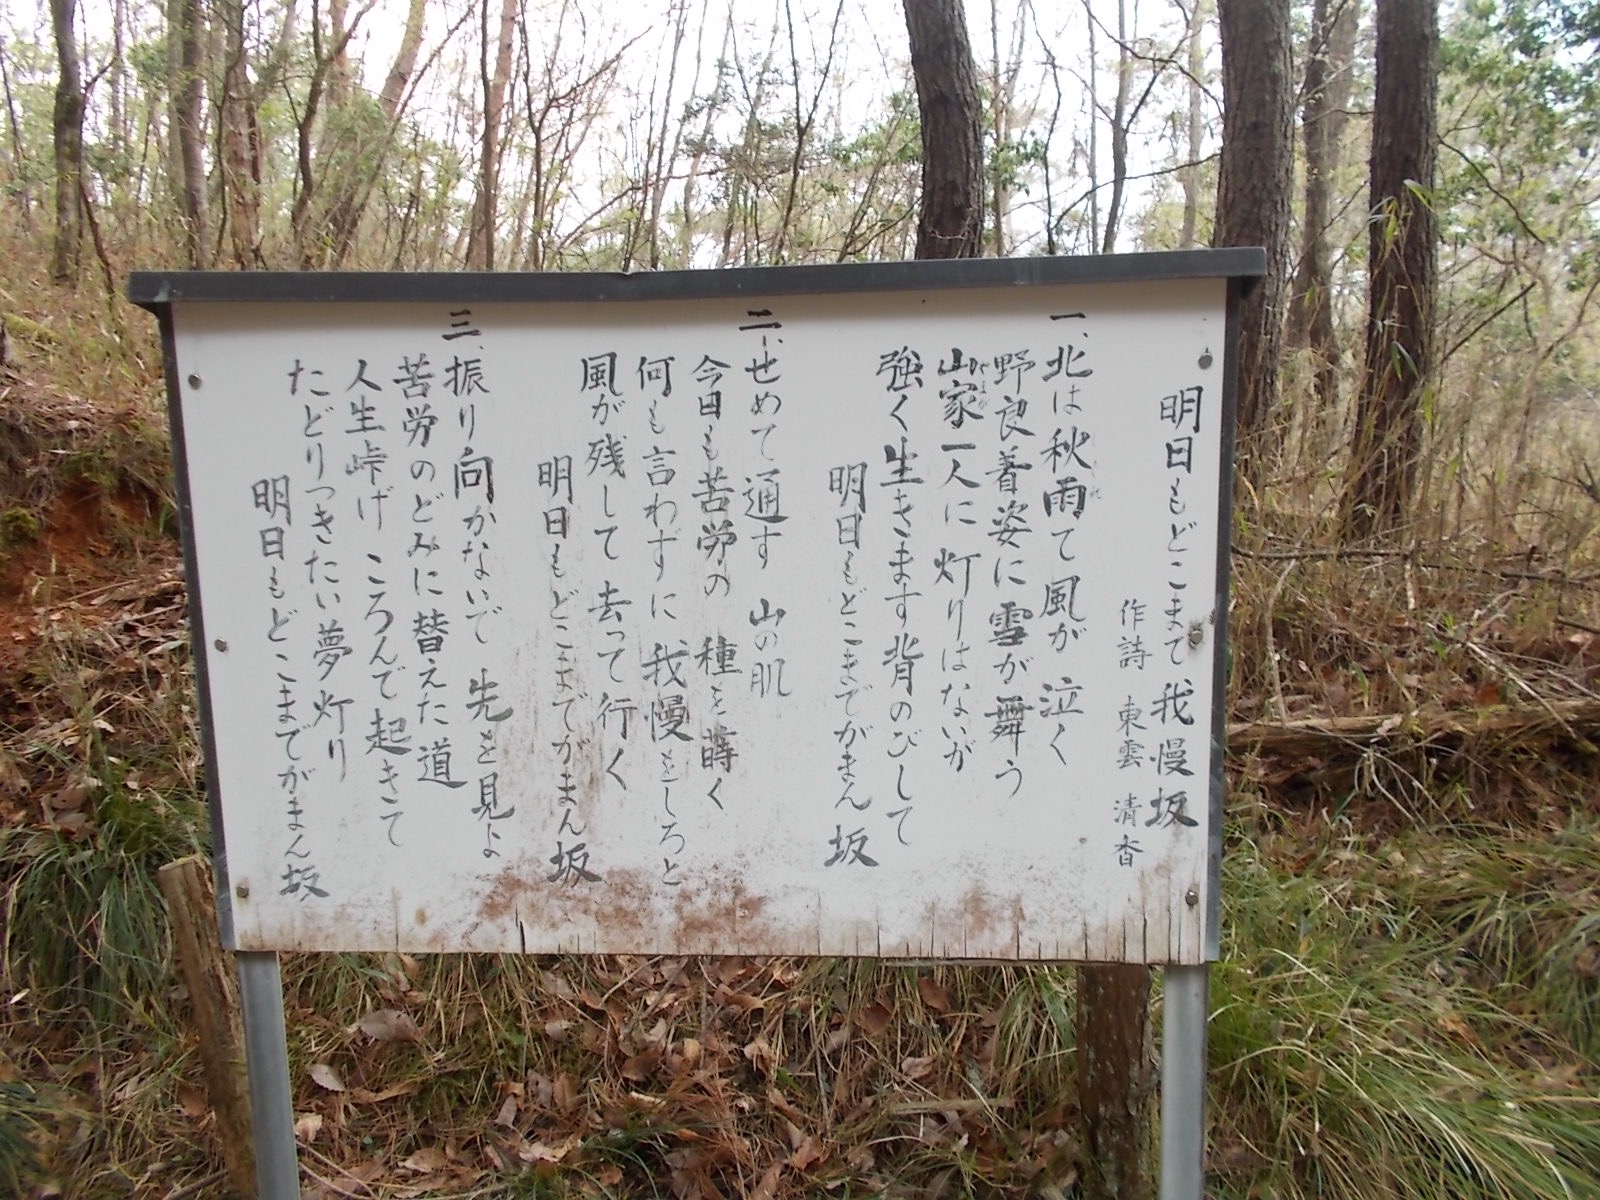 明日もどこまて我慢坂
作詩 東雲 清香
一、北は秋雨て風が泣く
野良着姿に雪が舞う
山家一人に灯りはないが
強く生きます背のびして
明日もどこまでがまん坂
二、せめて通す 山の肌
今日も苦労の 種を蒔く
何も言わずに 我慢をしろと
風が残して去って行く
明日もどこまでがまん坂
三、振り向かないで 先を見よ
苦労のどみに替えた道
人生峠げ ころんで起きて
たどりつきたい夢灯り
明日もどこまでがまん坂